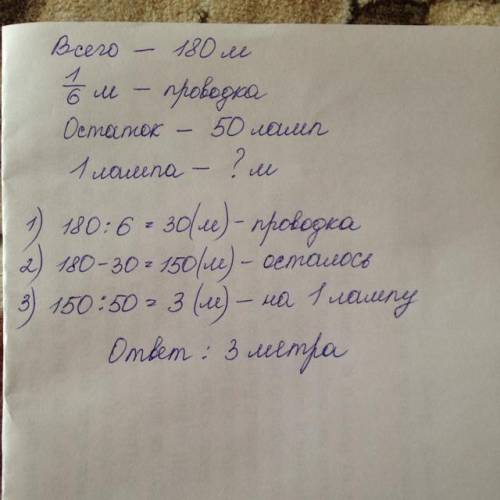 Всего – 180 м
1/6 м – проводка
Остаток – 50 ламп
1 лампа – ? м
1) 180 : 6 = 30 (м) – проводка
2) 180 – 30 = 150 (м) – осталось
3) 150 : 50 = 3 (м) – на 1 лампу
Ответ : 3 метра